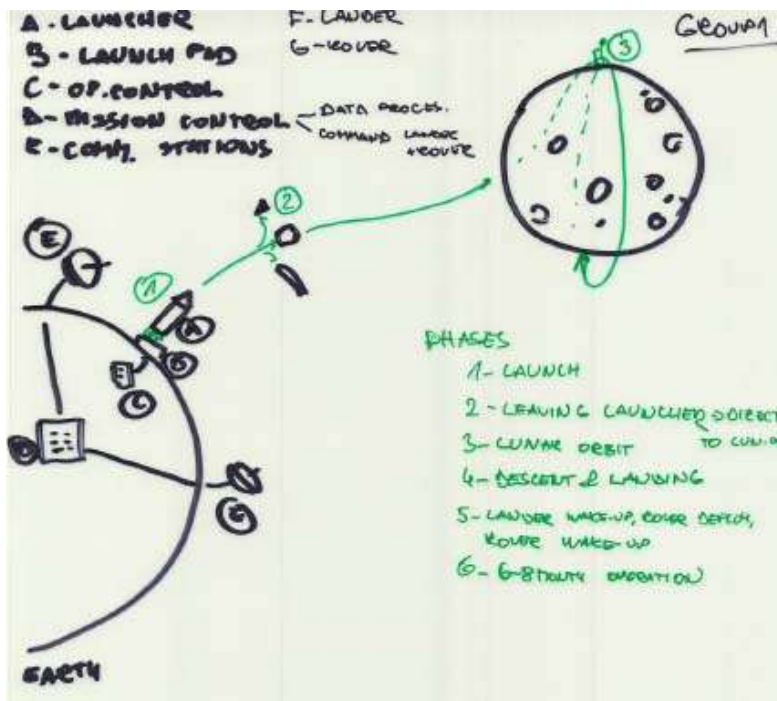 A - LAUNCHER
B - LAUNCH PAD
C - OP. CONTROL
D - MISSION CONTROL
DATA PROCES.
COMMAND LANDER
+ROVER
E - COMM. STATIONS
F - LANDER
G - ROVER
GROUP 1
3
2
1
E
A
B
C
D
E
EARTH
PHASES
1 - LAUNCH
2 - LEAVING LAUNCHER → DIRECT
TO LUN.
3 - LUNAR ORBIT
4 - DESCENT & LANDING
5 - LANDER WAKE-UP, ROVER DEPLOY,
ROVER WAKE-UP
6 - 6-8 MONTH OPERATION